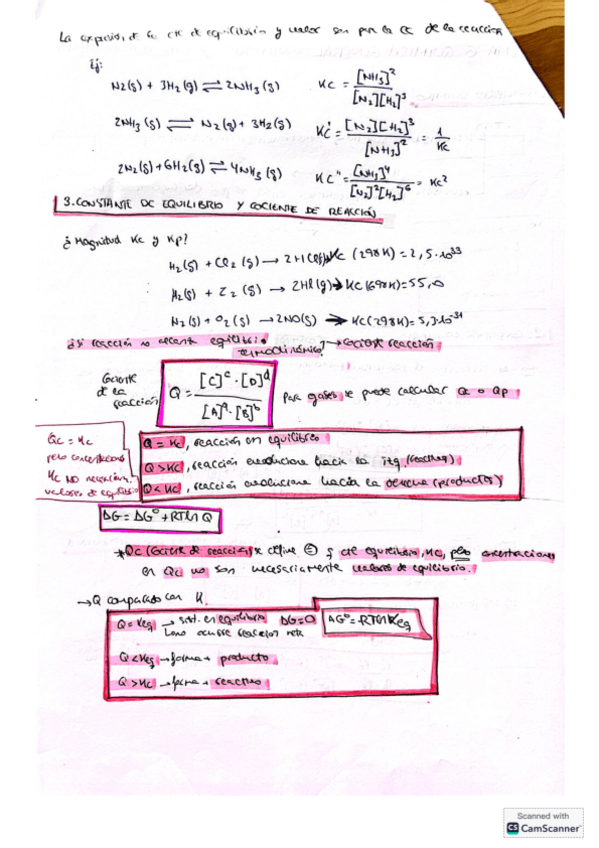 La expresión de la cte de equilibrio y valor son por la ec de la reacción
Ej:
N2(g) + 3H2(g) ⇌ 2NH3(g) Kc = [NH3]^2 / [N2][H2]^3
2NH3(g) ⇌ N2(g) + 3H2(g) Kc' = [N2][H2]^3 / [NH3]^2 = 1/Kc
2N2(g) + 6H2(g) ⇌ 4NH3(g) Kc'' = [NH3]^4 / [N2]^2[H2]^6 = Kc^2
3. CONSTANTE DE EQUILIBRIO Y COCIENTE DE REACCIÓN
¿Magnitud Kc y Kp?
H2(g) + Cl2(g) → 2HCl(g) Kc (298K) = 2,5·10^33
H2(g) + I2(g) → 2HI(g) → Kc (698K) = 55,0
N2(g) + O2(g) → 2NO(g) → Kc (298K) = 5,3·10^-31
¿Si reacción no alcanza equilibrio
termodinámico? → cociente reacción
Cociente de la reacción Q = [C]^c·[D]^d / [A]^a·[B]^b para gases se puede calcular Qc o Qp
Qc = Kc
pero concentraciones
Kc NO necesariam.
valores de equilibrio
Q = Kc, reacción en equilibrio
Q > Kc, reacción evoluciona hacia la izq. (reactivos)
Q < Kc, reacción evoluciona hacia la derecha (productos)
ΔG = ΔG° + RTln Q
*Qc (cociente de reacción) se define = y cte equilibrio, Kc, pero concentraciones
en Qc no son necesariamente valores de equilibrio.
→ Q comparado con K.
Q = Keq → sist. en equilibrio ΔG = 0 ΔG° = RTlnKeq
no ocurre reacción neta
Q < Keq → forma + producto
Q > Kc → forma + reactivo
Scanned with
CS CamScanner